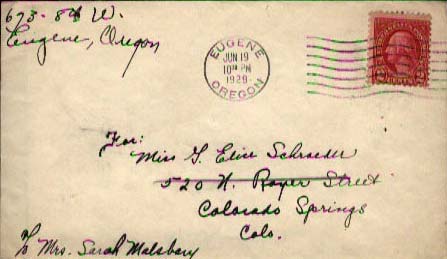 673-8th W.
Eugene, Oregon
EUGENE
JUN 19
10 PM
1929
OREGON
2 CENTS 2
For:
Miss G. Elise Schroeder
520 N. Royer Street
Colorado Springs
Colo.
% Mrs. Sarah Malsbary